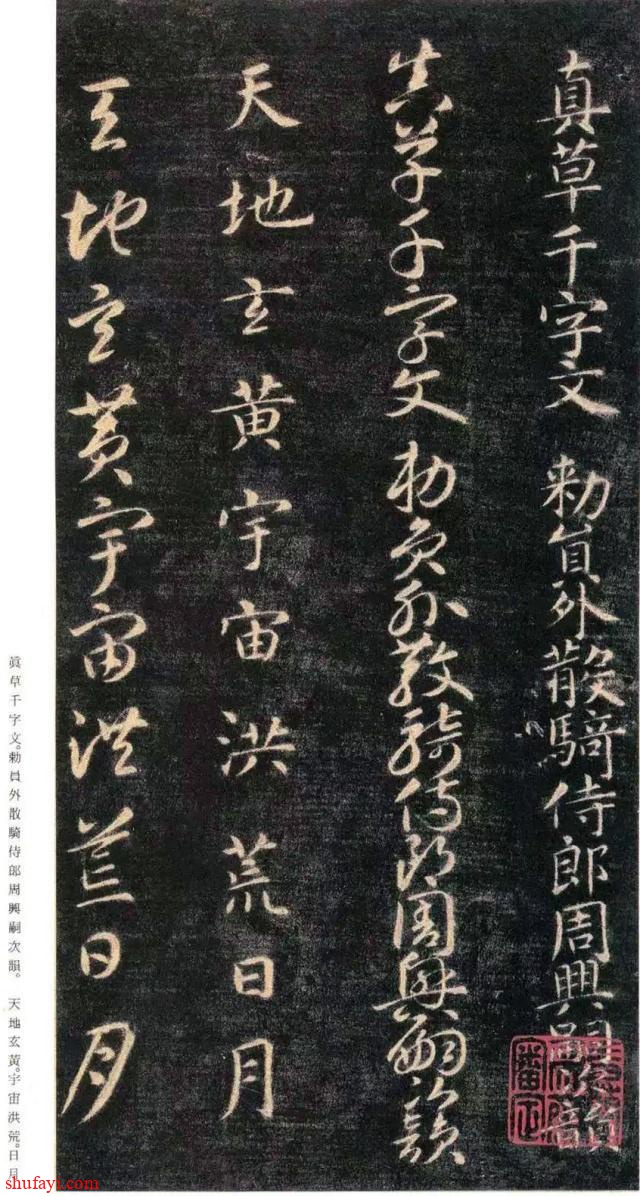 真草千字文 勅員外散騎侍郎周興嗣次韻
真草千字文 勅員外散騎侍郎周興嗣次韻
天地玄黄宇宙洪荒日月
天地玄黄宇宙洪荒日月
眞草千字文。勅員外散騎侍郎周興嗣次韻。 天地玄黃。宇宙洪荒。日月
shufayi.com